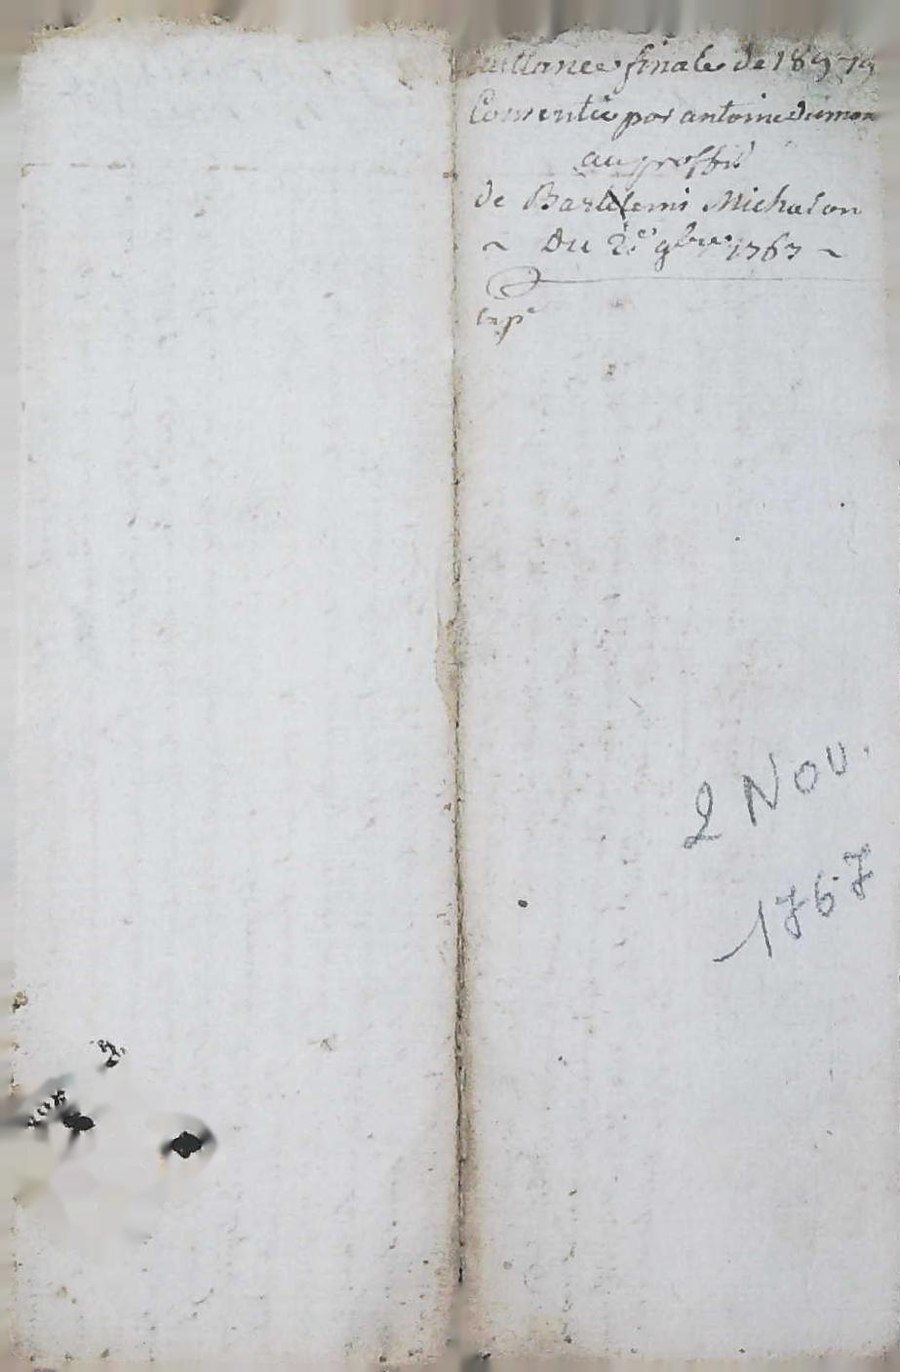 quittance finale de 189-19
Consentie par antoine dumon
au proffit
de Bartelemi Michalon
~ Du 2e 9bre 1767 ~
Exp
2 Nov.
1767